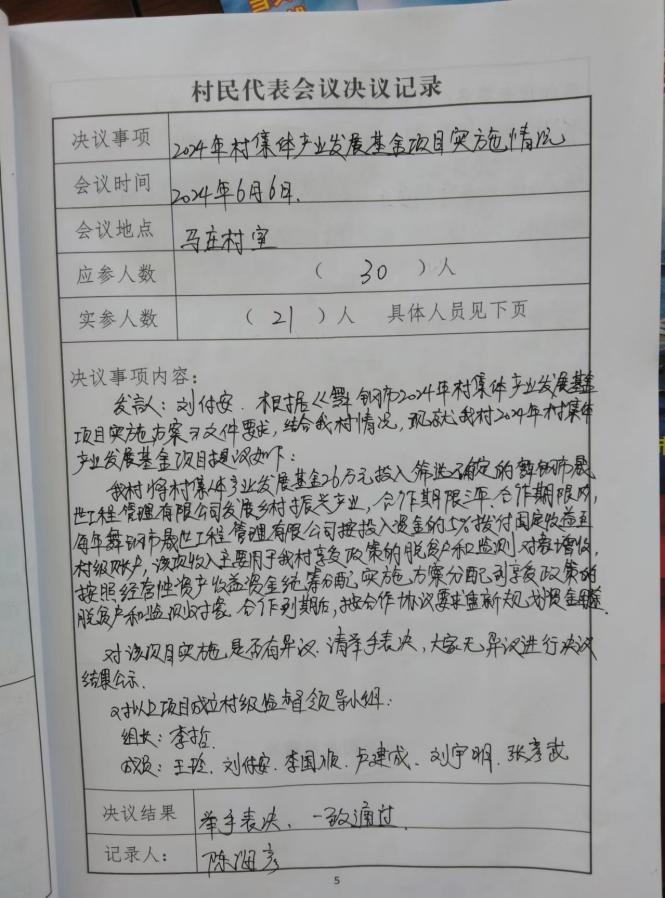 村民代表会议决议记录
决议事项 2024年村集体产业发展基金项目实施情况
会议时间 2024年6月6日.
会议地点 马庄村室
应参人数 ( 30 )人
实参人数 ( 21 )人 具体人员见下页
决议事项内容:
发言人:刘付安. 根据《舞钢市2024年村集体产业发展基金
项目实施方案》文件要求,结合我村情况,现就我村2024年村集体
产业发展基金项目提议如下:
我村将村集体产业发展基金26万元投入筛选确定的舞钢市晟
世工程管理有限公司发展乡村振兴产业,合作期限三年.合作期限内,
每年舞钢市晟世工程管理有限公司按投入资金的5%拨付固定收益至
村级账户,该项收入主要用于我村享受政策的脱贫户和监测对象增收,
按照经营性资产收益资金统筹分配实施方案分配到享受政策的
脱贫户和监测对象.合作到期后,按合作协议要求重新规划资金
对该项目实施是否有异议.请举手表决,大家无异议进行决议
结果公示.
对以上项目成立村级监督领导小组:
组长:李哲
成员:王 刘付安.李国顺.卢建成.刘宇明.张彦武
决议结果 举手表决、一致通过.
记录人: 陈海彦
5